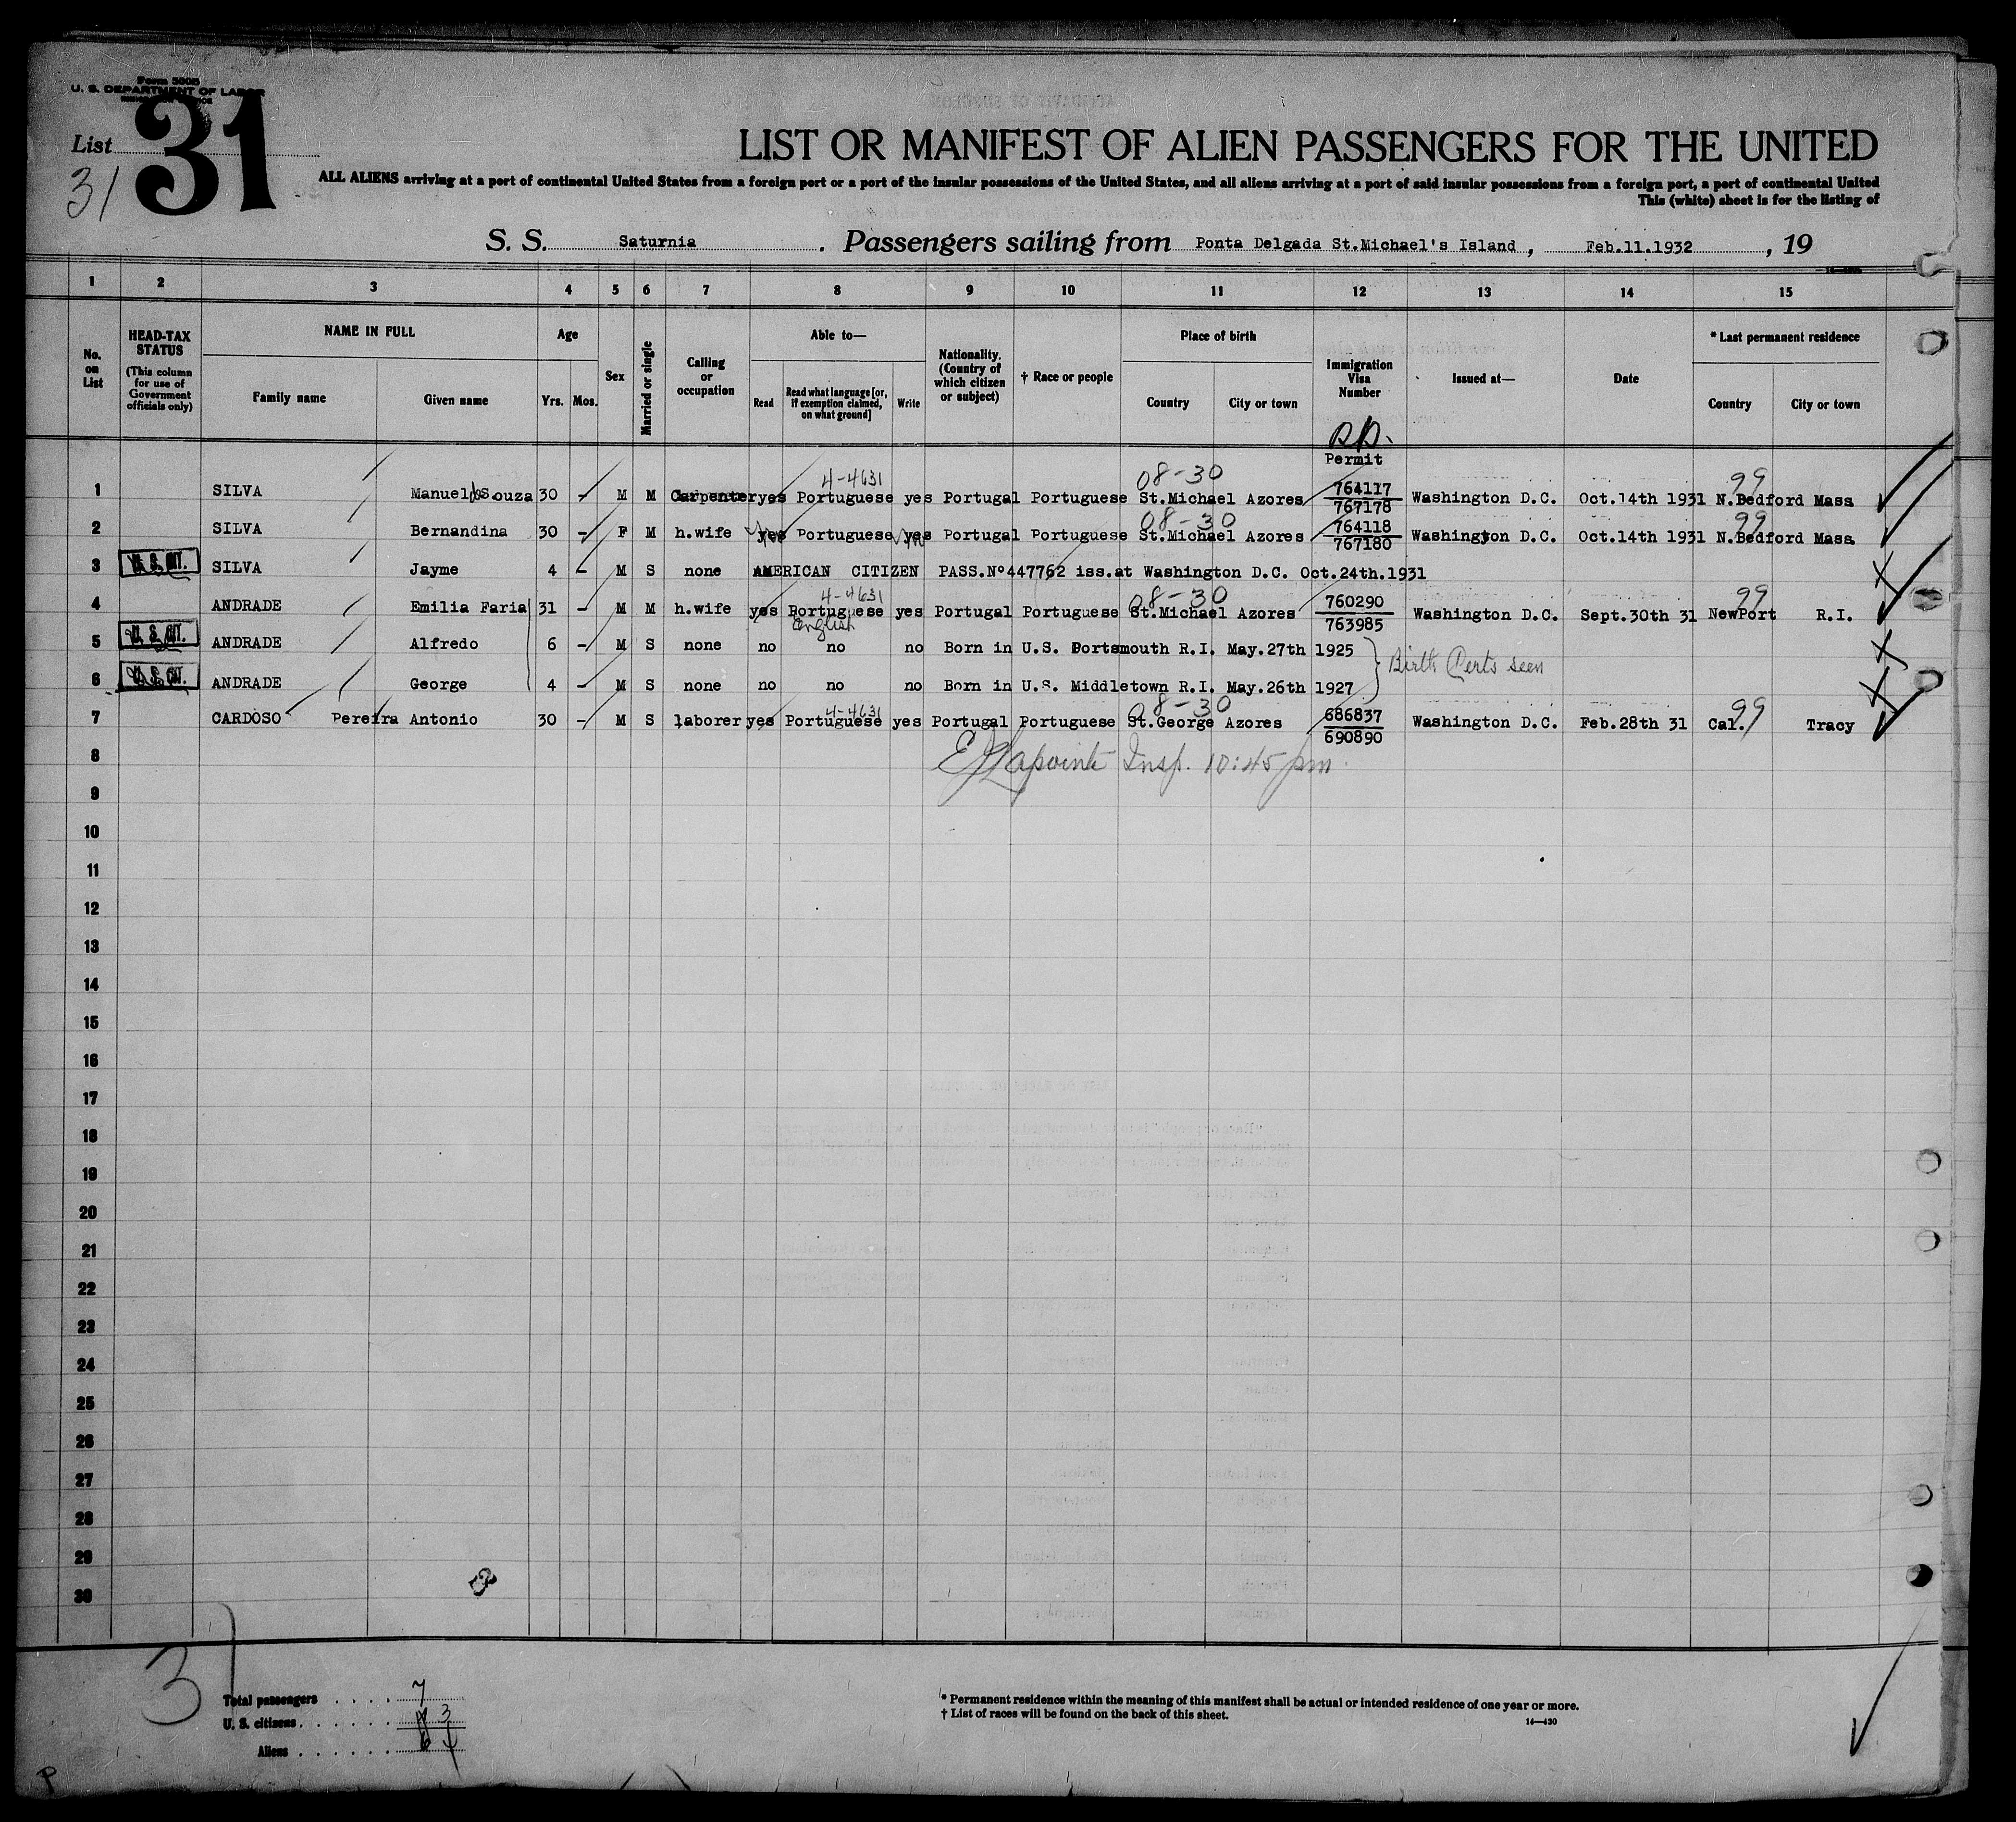 Form 500B
U. S. DEPARTMENT OF LABOR
List 31
31
LIST OR MANIFEST OF ALIEN PASSENGERS FOR THE UNITED
ALL ALIENS arriving at a port of continental United States from a foreign port or a port of the insular possessions of the United States, and all aliens arriving at a port of said insular possessions from a foreign port, a port of continental United
This (white) sheet is for the listing of
S. S. Saturnia. Passengers sailing from Ponta Delgada St.Michael's Island, Feb.11.1932, 19
1 2 3 4 5 6 7 8 9 10 11 12 13 14 15
No. on List
HEAD-TAX STATUS (This column for use of Government officials only)
NAME IN FULL
Family name
Given name
Age
Yrs. Mos.
Sex
Married or single
Calling or occupation
Able to—
Read
Read what language [or, if exemption claimed, on what ground]
Write
Nationality. (Country of which citizen or subject)
† Race or people
Place of birth
Country
City or town
Immigration Visa Number
Issued at—
Date
* Last permanent residence
Country
City or town
Permit
4-4631 08-30 99
1 SILVA Manuel Souza 30 - M M Carpenter yes Portuguese yes Portugal Portuguese St.Michael Azores 764117 767178 Washington D.C. Oct.14th 1931 N.Bedford Mass
08-30 99
2 SILVA Bernandina 30 - F M h.wife yes Portuguese yes Portugal Portuguese St.Michael Azores 764118 767180 Washington D.C. Oct.14th 1931 N.Bedford Mass
3 U. S. CIT. SILVA Jayme 4 - M S none AMERICAN CITIZEN PASS.Nº447762 iss.at Washington D.C. Oct.24th.1931
4-4631 08-30 99
4 ANDRADE Emilia Faria 31 - M M h.wife yes Portuguese yes Portugal Portuguese St.Michael Azores 760290 763985 Washington D.C. Sept.30th 31 NewPort R.I.
English
5 U. S. CIT. ANDRADE Alfredo 6 - M S none no no no Born in U.S. Portsmouth R.I. May.27th 1925
Birth Certs seen
6 U. S. CIT. ANDRADE George 4 - M S none no no no Born in U.S. Middletown R.I. May.26th 1927
4-4631 08-30 99
7 CARDOSO Pereira Antonio 30 - M S laborer yes Portuguese yes Portugal Portuguese St.George Azores 686837 690890 Washington D.C. Feb.28th 31 Cal. Tracy
8 Lapointe Insp. 10:45 pm
9
10
11
12
13
14
15
16
17
18
19
20
21
22
23
24
25
26
27
28
29
30
31
Total passengers . . . . 7
U. S. citizens . . . . . . 3
Aliens . . . . . . 4
* Permanent residence within the meaning of this manifest shall be actual or intended residence of one year or more.
† List of races will be found on the back of this sheet.
14—430